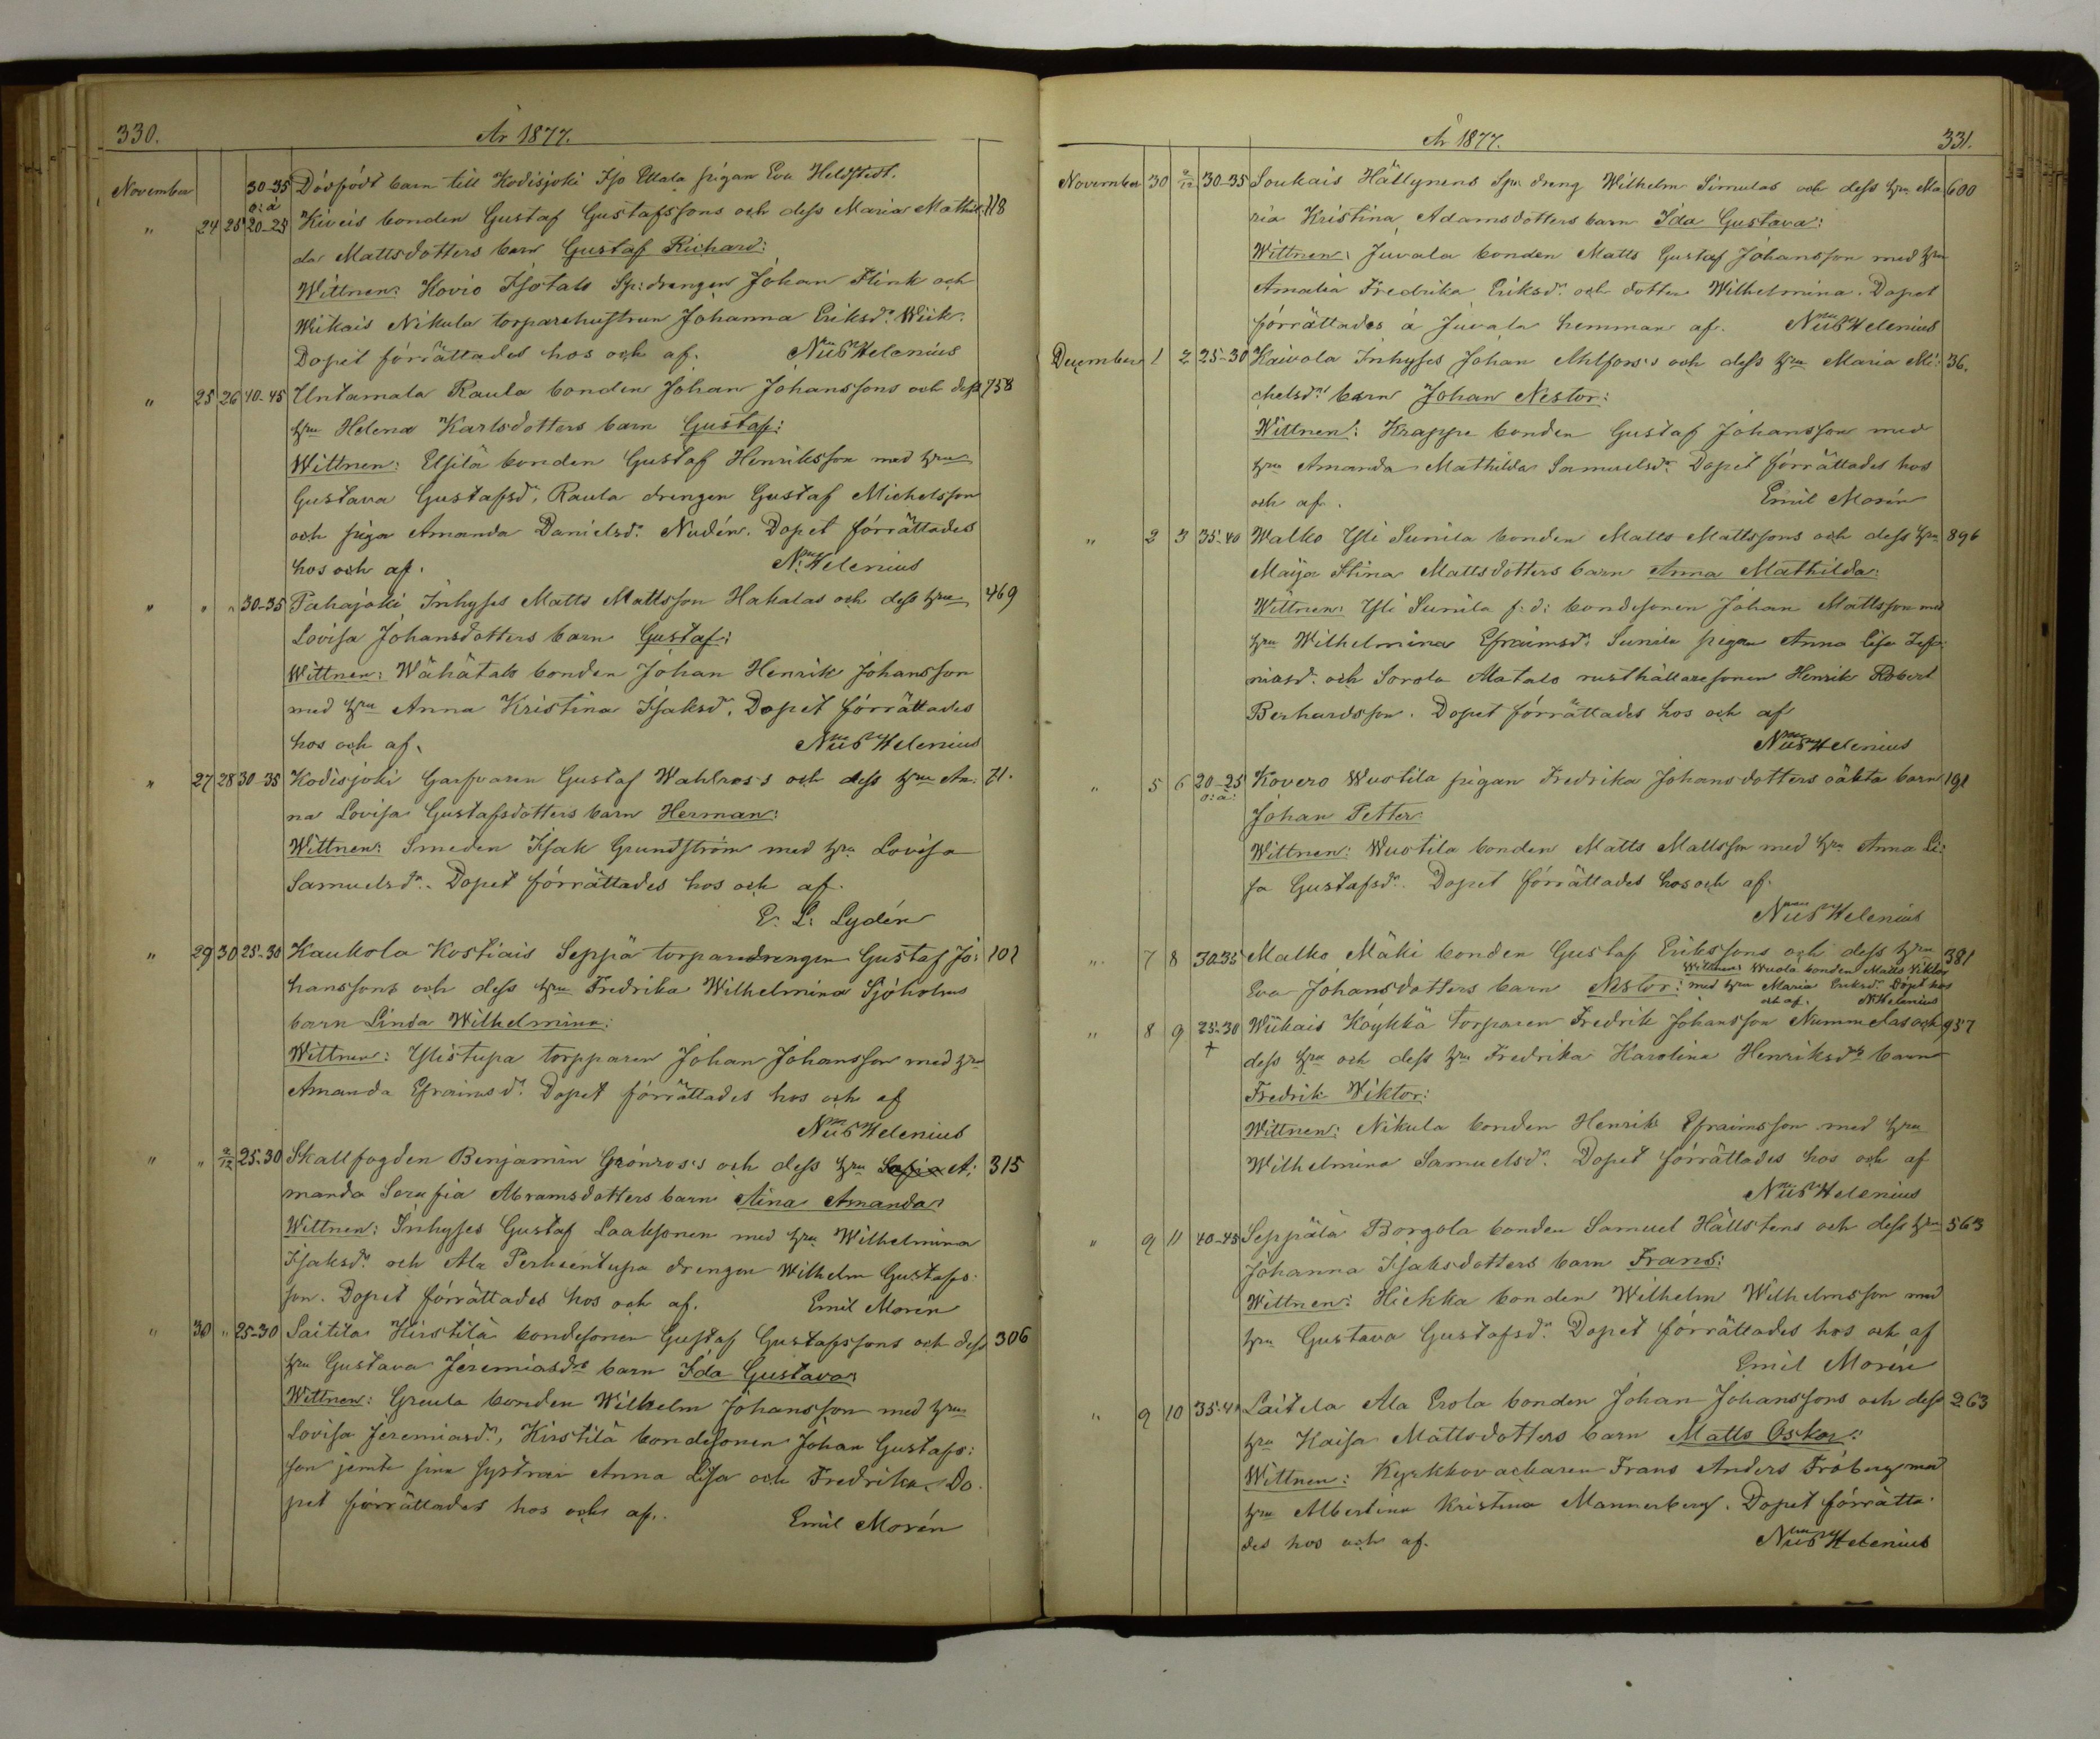 330.
År 1877.
November 30-35 Dödfödt barn till Kodisjoki Iso Ellala pigan Eva Heldstedt.
o: ä
" 24 25 20-25 Kiveis bonden Gustaf Gustafssons och dess Maria Mathil: 118
da Mattsdotters barn Gustaf Richard:
Wittnen: Hovio Isotalo Sp: drengen Johan Flink och
Wiikais Nikula torparehustrun Johanna Eriksdr Wiik.
Dopet förrättades hos och af. Nils Helenius
" 25 26 40-45 Untamala Raula bonden Johan Johanssons och dess 758
hru Helena Karlsdotters barn Gustaf:
Wittnen: Ussila bonden Gustaf Henriksson med hru
Gustava Gustafsdr, Raula drengen Gustaf Michelsson
och piga Amanda Danielsdr Nudén. Dopet förrättades
hos och af. N. Helenius
" " " 30-35 Pahajoki Inhyses Matts Mattsson Hakalas och dess hru 469
Lovisa Johansdotters barn Gustaf:
Wittnen: Wähätalo bonden Johan Henrik Johansson
med hru Anna Kristina Isaksdr. Dopet förrättades
hos och af. Nils Helenius
" 27 28 30-35 Kodisjoki Garfvaren Gustaf Wahlroos's och dess hru An: 71.
na Lovisa Gustafsdotters barn Herman:
Wittnen: Smeden Isak Grundström med hru Lovisa
Samuelsdr. Dopet förrättades hos och af.
E. L. Lydén
" 29 30 25-30 Kaukola Kostiais Seppä torparedrengen Gustaf Jo: 101
hanssons och dess hru Fredrika Wilhelmina Sjöholms
barn Linda Wilhelmina:
Wittnen: Ylistupa torpparen Johan Johansson med hru
Amanda Efraimsdr. Dopet förrättades hos och af
Nils Helenius
" " 2/12 25-30 Skallfogden Benjamin Grönroos's och dess hru Sofia A: 315
manda Serafia Abramsdotters barn Aina Amanda:
Wittnen: Inhyses Gustaf Laaksonen med hru Wilhelmina
Isaksdr och Ala Perheentupa drengen Wilhelm Gustafs:
son. Dopet förrättades hos och af. Emil Morén
" 30 " 25-30 Saitila Kirstilä bondesonen Gustaf Gustafssons och dess 306
hru Gustava Jeremiasdrs barn Ida Gustava:
Wittnen: Greula bonden Wilhelm Johansson med hru
Lovisa Jeremiasdr, Kirstilä bondesonen Johan Gustafs:
son jemte sina systrar Anna Lisa och Fredrika. Do
pet förrättades hos och af. Emil Morén
År 1877.
331.
November 30 2/12 30-35 Soukais Hällynens Spm dreng Wilhelm Simulas och dess hru Ma 600
ria Kristina Adamsdotters barn Ida Gustava:
Wittnen: Juvala bonden Matts Gustaf Johansson med hru
Amalia Fredrika Eriksdr och dotter Wilhelmina. Dopet
förrättades å Juvala hemman af. Nils Helenius
December 1 2 25-30 Kaivola Inhyses Johan Ahlfors's och dess hru Maria Mi: 36.
chelsdrs barn Johan Nestor:
Wittnen: Krappe bonden Gustaf Johansson med
hru Amanda Mathilda Samuelsdr Dopet förrättades hos
och af. Emil Morén
" 2 3 35-40 Walko Yli Sunila bonden Matts Mattssons och dess hru 896
Maija Stina Mattsdotters barn Anna Mathilda:
Wittnen: Yli Sunila f: d: bondesonen Johan Mattsson med
hru Wilhelmina Efraimsdr. Sunila pigan Anna Lisa Jere
miasdr. och Sorola Alatalo rusthållaresonen Henrik Robert
Berhardsson. Dopet förrättades hos och af
Nils Helenius
" 5 6 20-25 Kovero Wuotila pigan Fredrika Johansdotters oäkta barn 191
o: ä:
Johan Petter
Wittnen: Wuotila bonden Matts Mattsson med hru Anna Li:
sa Gustafsdr. Dopet förrättades hos och af.
Nils Helenius
" 7 8 30-35 Malko Mäki bonden Gustaf Erikssons och dess hru 381
Wittnen: Wuola bonden Matts Viktor
Eva Johansdotters barn Nestor: med hru Maria Eriksdr. Dopet hos
och af. N. Helenius
" 8 9 25-30 Wiikais Köykkä torparen Fredrik Johansson Nummelas och 957
+
dess hru och dess hru Fredrika Karolina Henriksdrs barn
Fredrik Wiktor:
Wittnen: Nikula bonden Henrik Efraimsson med hru
Wilhelmina Samuelsdr. Dopet förrättades hos och af
Nils Helenius
" 9 11 40-45 Seppälä Borgola bonden Samuel Hällstens och dess hru 563
Johanna Isaksdotters barn Frans:
Wittnen: Hiekka bonden Wilhelm Wilhelmsson med
hru Gustava Gustafsdr. Dopet förrättades hos och af
Emil Morén
" 9 10 35-40 Laitela Ala Erola bonden Johan Johanssons och dess 263
hru Kaisa Mattsdotters barn Matts Oskar:
Wittnen: Kyrkkovackaren Frans Anders Fröberg med
hru Albertina Kristina Mannerberg. Dopet förrätta:
des hos och af. Nils Helenius